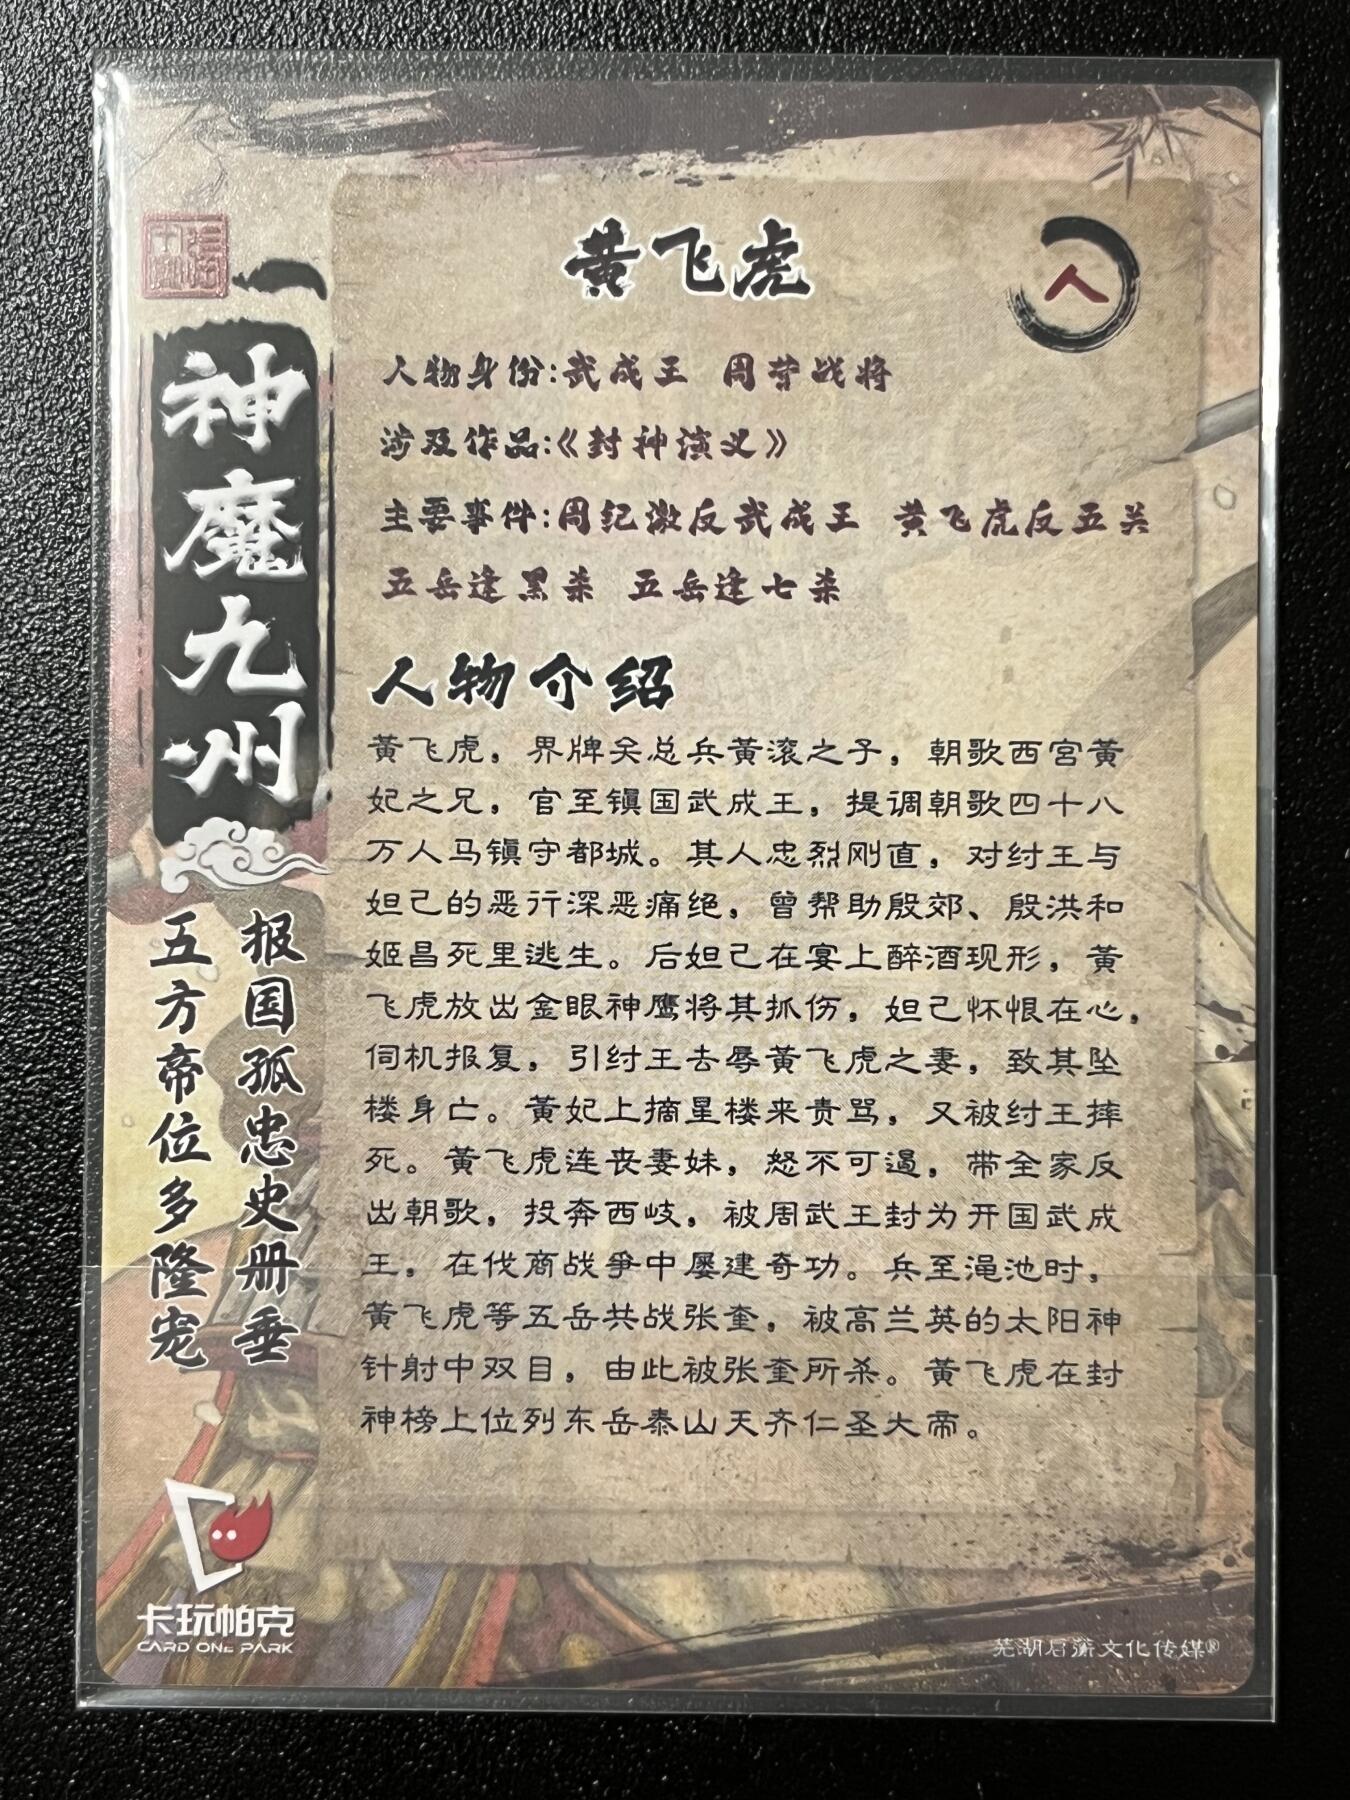 黄飞虎
人
人物身份:武成王 周营战将
涉及作品:《封神演义》
主要事件:周纪激反武成王 黄飞虎反五关
五岳逢黑杀 五岳逢七杀
人物介绍
黄飞虎，界牌关总兵黄滚之子，朝歌西宫黄
妃之兄，官至镇国武成王，提调朝歌四十八
万人马镇守都城。其人忠烈刚直，对纣王与
妲己的恶行深恶痛绝，曾帮助殷郊、殷洪和
姬昌死里逃生。后妲己在宴上醉酒现形，黄
飞虎放出金眼神鹰将其抓伤，妲己怀恨在心，
伺机报复，引纣王去辱黄飞虎之妻，致其坠
楼身亡。黄妃上摘星楼来责骂，又被纣王摔
死。黄飞虎连丧妻妹，怒不可遏，带全家反
出朝歌，投奔西岐，被周武王封为开国武成
王，在伐商战争中屡建奇功。兵至渑池时，
黄飞虎等五岳共战张奎，被高兰英的太阳神
针射中双目，由此被张奎所杀。黄飞虎在封
神榜上位列东岳泰山天齐仁圣大帝。
神魔九州
报国孤忠史册垂
五方帝位多隆宠
卡玩帕克
CARD ONE PARK
芜湖启蒲文化传媒®